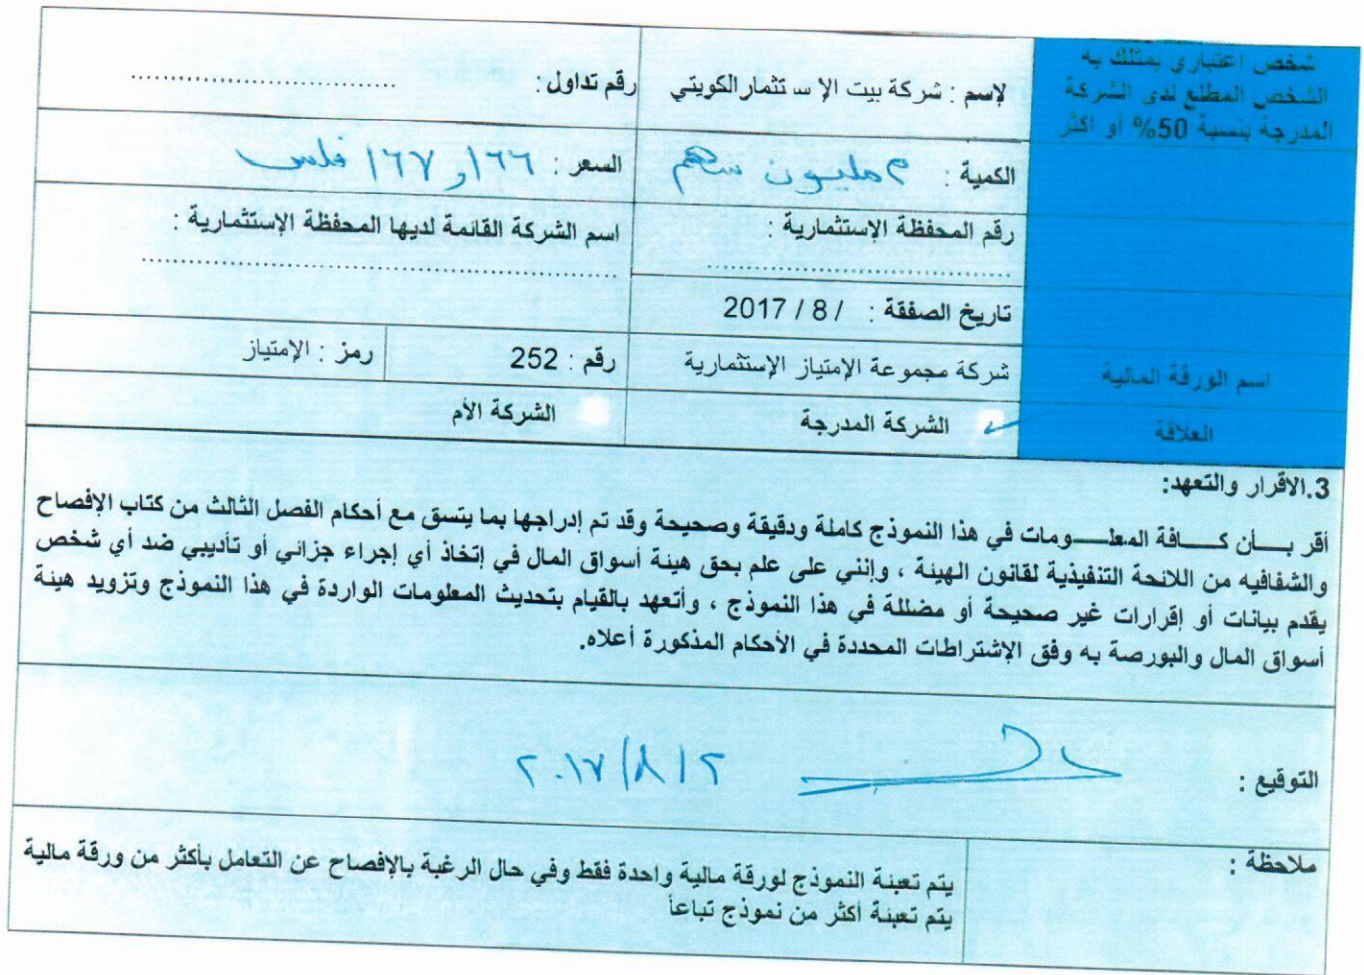 شخص إعتباري يمتلك به
الشخص المطلع لدى الشركة
المدرجة بنسبة 50% أو اكثر
لإسم : شركة بيت الإ ستثمارالكويتي
رقم تداول : ........................
الكمية : ٢ مليون سهم
السعر : ١٦٦ و ١٦٧ فلس
رقم المحفظة الإستثمارية :
اسم الشركة القائمة لديها المحفظة الإستثمارية :
تاريخ الصفقة : / 8 / 2017
اسم الورقة المالية
شركة مجموعة الإمتياز الإستثمارية
رقم : 252
رمز : الإمتياز
العلاقة
الشركة المدرجة
الشركة الأم
3.الاقرار والتعهد:
أقر بـــأن كـــــافة المعلـــــومات في هذا النموذج كاملة ودقيقة وصحيحة وقد تم إدراجها بما يتسق مع أحكام الفصل الثالث من كتاب الإفصاح
والشفافيه من اللائحة التنفيذية لقانون الهيئة ، وإنني على علم بحق هيئة أسواق المال في إتخاذ أي إجراء جزائي أو تأديبي ضد أي شخص
يقدم بيانات أو إقرارات غير صحيحة أو مضللة في هذا النموذج ، وأتعهد بالقيام بتحديث المعلومات الواردة في هذا النموذج وتزويد هيئة
أسواق المال والبورصة به وفق الإشتراطات المحددة في الأحكام المذكورة أعلاه.
التوقيع :
٢٠١٧/٨/٢
ملاحظة :
يتم تعبئة النموذج لورقة مالية واحدة فقط وفي حال الرغبة بالإفصاح عن التعامل بأكثر من ورقة مالية
يتم تعبئة أكثر من نموذج تباعاً